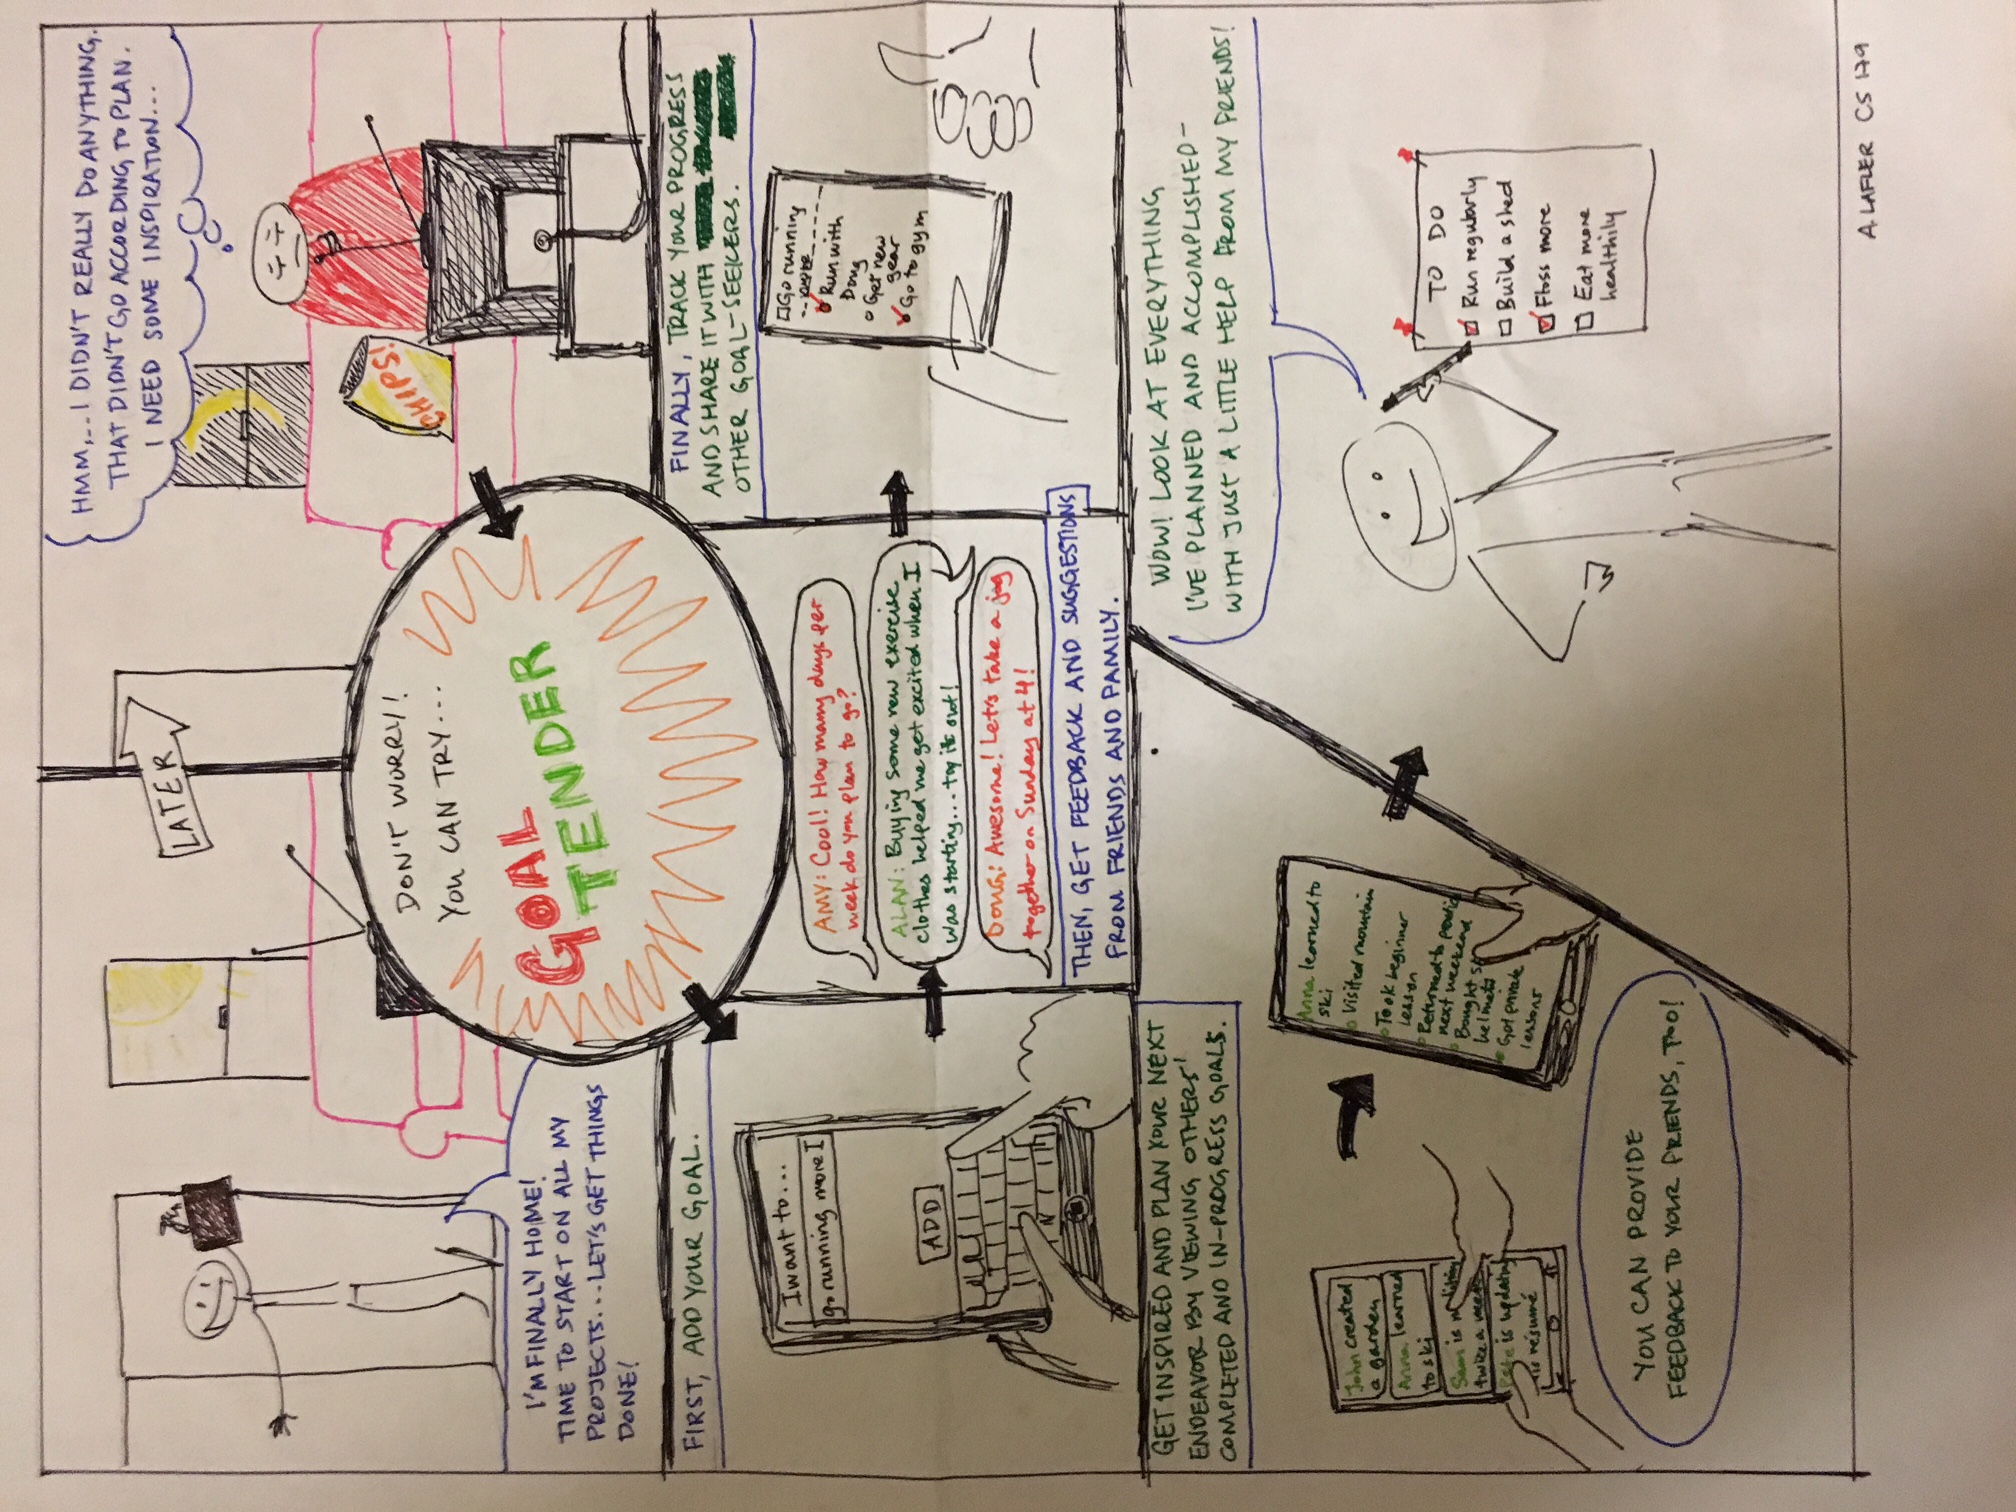 I'M FINALLY HOME!
TIME TO START ON ALL MY
PROJECTS...LET'S GET THINGS
DONE!
LATER
HMM,...I DIDN'T REALLY DO ANYTHING.
THAT DIDN'T GO ACCORDING TO PLAN.
I NEED SOME INSPIRATION...
CHIPS!
DON'T WORRY!
YOU CAN TRY...
GOAL
TENDER
FIRST, ADD YOUR GOAL.
I want to...
go running more I
ADD
AMY: Cool! How many days per
week do you plan to go?
ALAN: Buying some new exercise
clothes helped me get excited when I
was starting... try it out!
DOUG: Awesome! Let's take a jog
together on Sunday at 4!
THEN, GET FEEDBACK AND SUGGESTIONS
FROM FRIENDS AND FAMILY.
FINALLY, TRACK YOUR PROGRESS
AND SHARE IT WITH
OTHER GOAL-SEEKERS.
Go running
more
Run with
Doug
Get new
gear
Go to gym
GET INSPIRED AND PLAN YOUR NEXT
ENDEAVOR BY VIEWING OTHERS'
COMPLETED AND IN-PROGRESS GOALS.
John created
a garden
Anna learned
to ski
Sam is
twice a week
Pete is updating
his résumé
Anna learned to
ski
Visited mountain
Took beginner
lesson
Returned to practice
next weekend
Bought
helmet
Got private
lessons
YOU CAN PROVIDE
FEEDBACK TO YOUR FRIENDS, TOO!
WOW! LOOK AT EVERYTHING
I'VE PLANNED AND ACCOMPLISHED-
WITH JUST A LITTLE HELP FROM MY FRIENDS!
TO DO
Run regularly
Build a shed
Floss more
Eat more
healthily
A. LAFLER CS 179